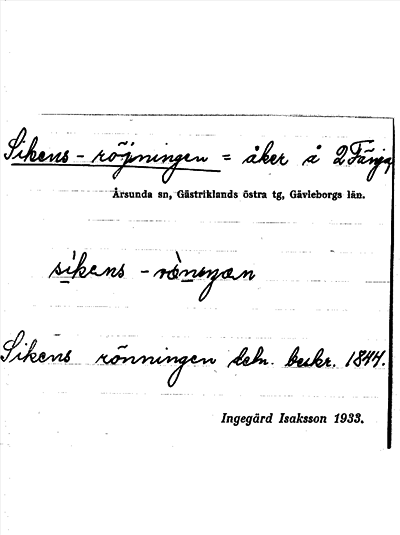 Sikens-röjningen = åker å 2 Fänja
Årsunda sn, Gästriklands östra tg, Gävleborgs län.
Sikens rönningen beskr. 1844.
Ingegärd Isaksson 1933.